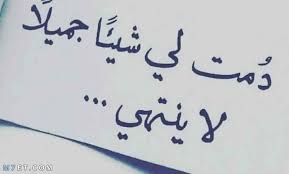 دُمت لي شيئًا جميلًا
لا ينتهي ...
MHET.COM